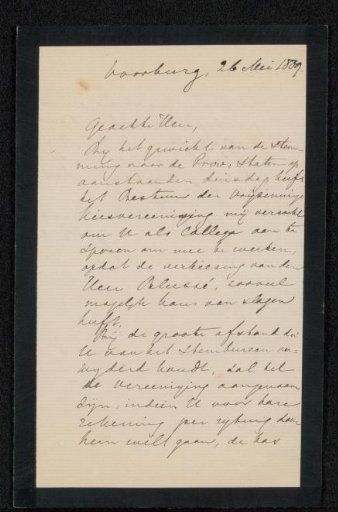 Voorburg, 26 Mei 1889.
Geachte Heer,
Bij het gewicht van de stem-
ming voor de Prov. Staten op
aanstaanden dinsdag heeft
het Bestuur der
kiesvereeniging mij verzocht
om U als Collega aan te
sporen om mee te werken,
opdat de verkiezing van den
Heer zooveel
mogelijk kans van slagen
heeft.
Bij de groote afstand die
U van het stembureau ver-
wijderd houdt, zal het
de vereeniging aangenaam
zijn, indien U voor hare
rekening per rijtuig daar
heen wilt gaan, de has